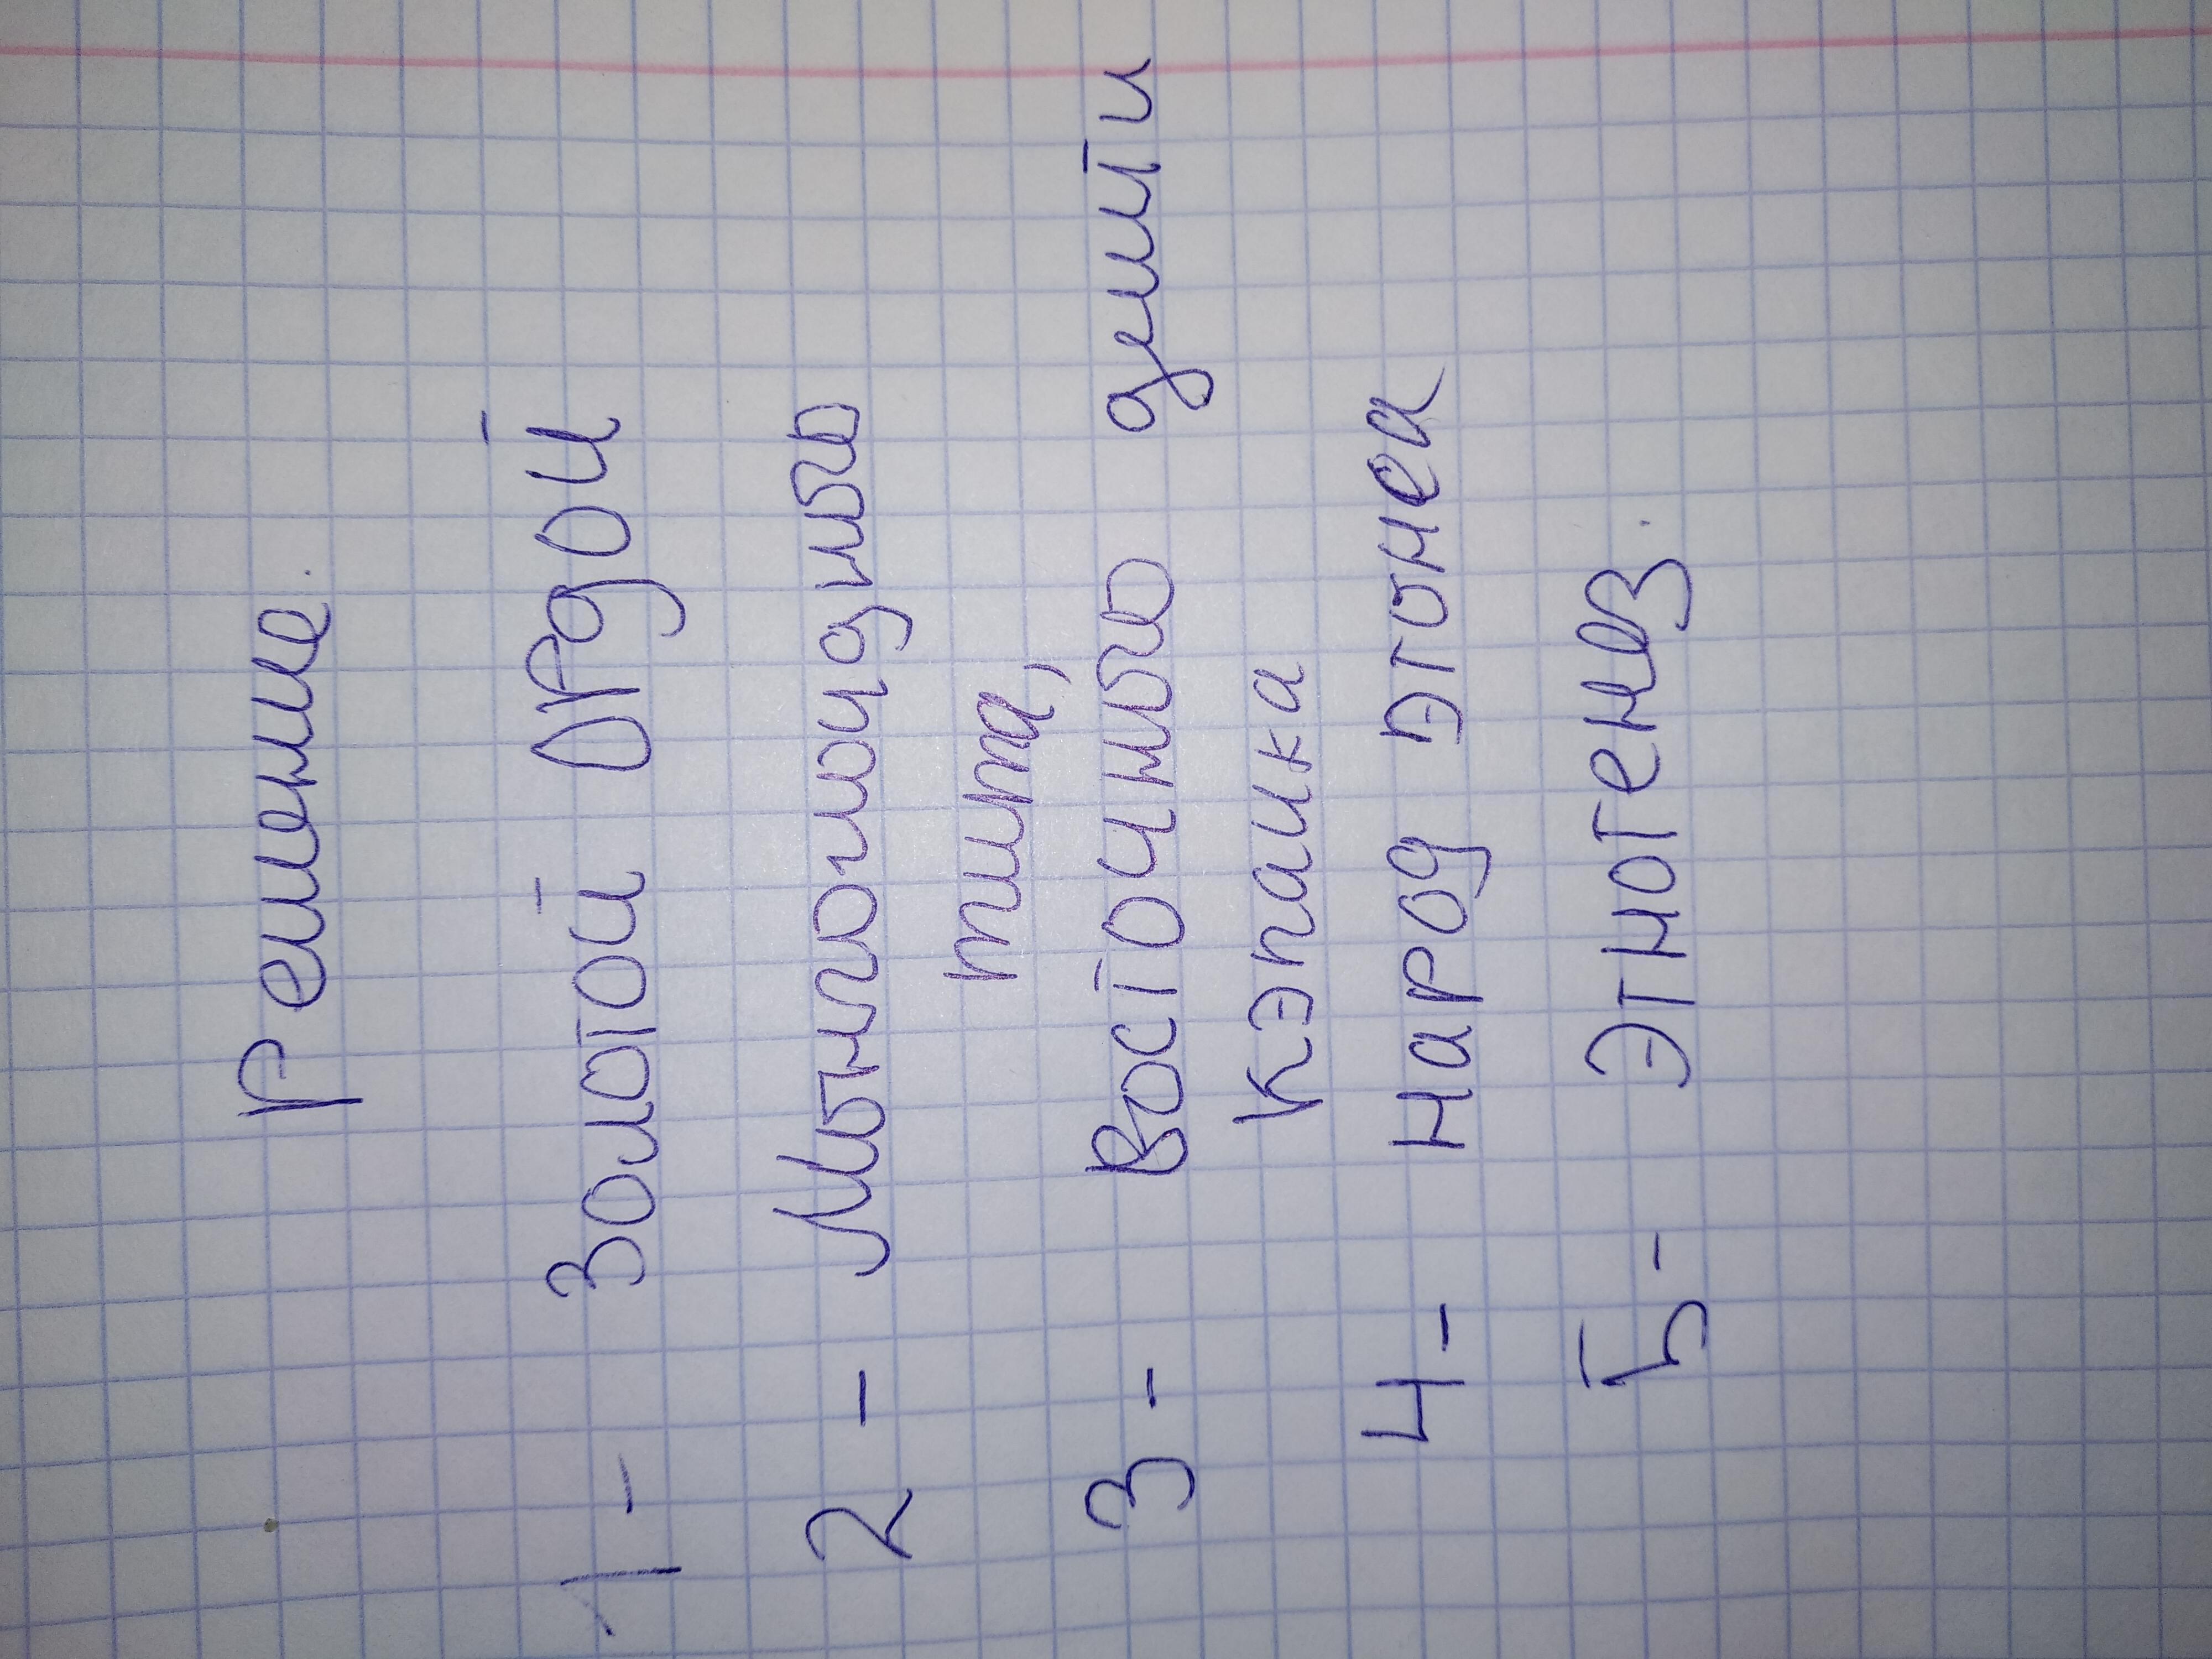 Решение.
1 - Золотой Ордой
2 - Монголоидного
типа,
3 - Восточного дешти
кэпаика
4 - Народ этонеа
5 - Этногенез.